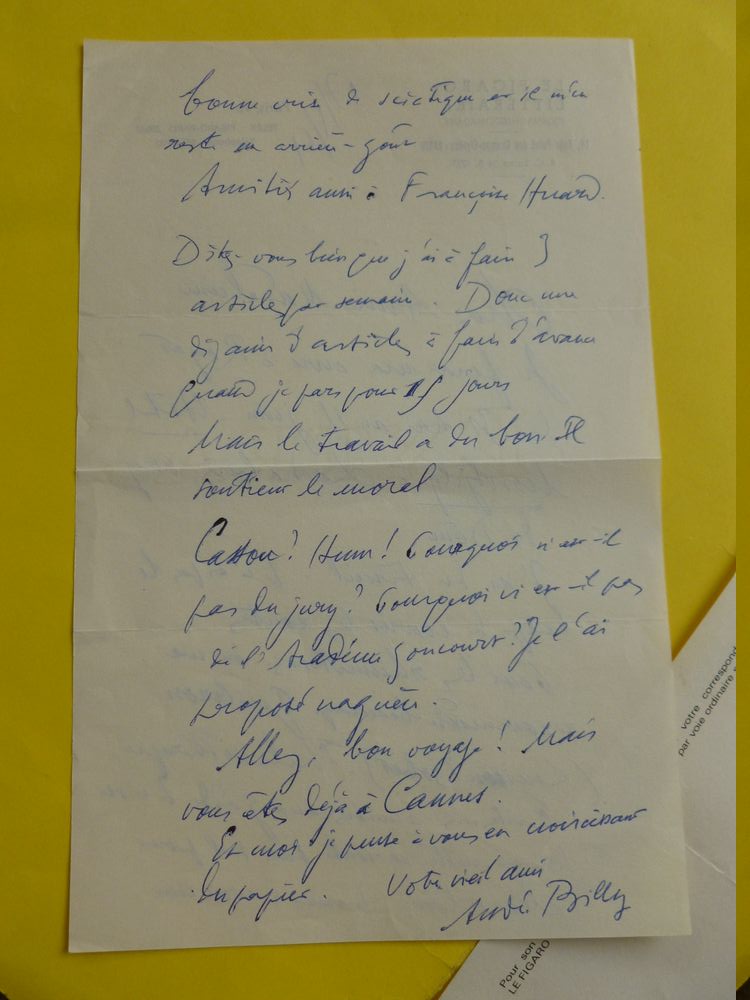 bonne crise de sciatique et il m'en
reste un arrière-goût
Amitiés aussi à Françoise Huard.
Dites-vous bien que j'ai à faire 3
articles par semaine. Donc une
dizaine d'articles à faire d'avance
quand je pars pour 15 jours
Mais le travail a du bon. Il
soutient le moral
Cassou? Hum! Pourquoi n'est-il
pas du jury? Pourquoi n'est-il pas
de l'Académie Goncourt? Je l'ai
proposé naguère.
Allez, bon voyage! Mais
vous êtes déjà à Cannes.
Et moi je pense à vous en noircissant
du papier. Votre vieil ami
André Billy
votre correspond
par voie ordinaire
Pour son
LE FIGARO